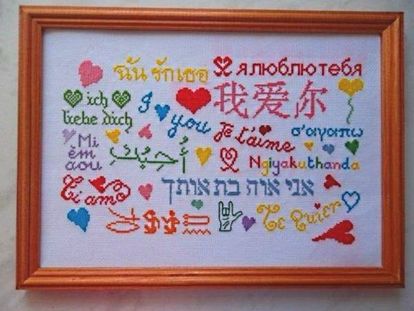 ฉัน รักเธอ
я люблю тебя
ich
liebe dich
I
you
我爱你
Je t'aime
σ'αγαπω
أحبك
Ngiyakuthanda
Ti amo
אני אוהבת אותך
Te Quier